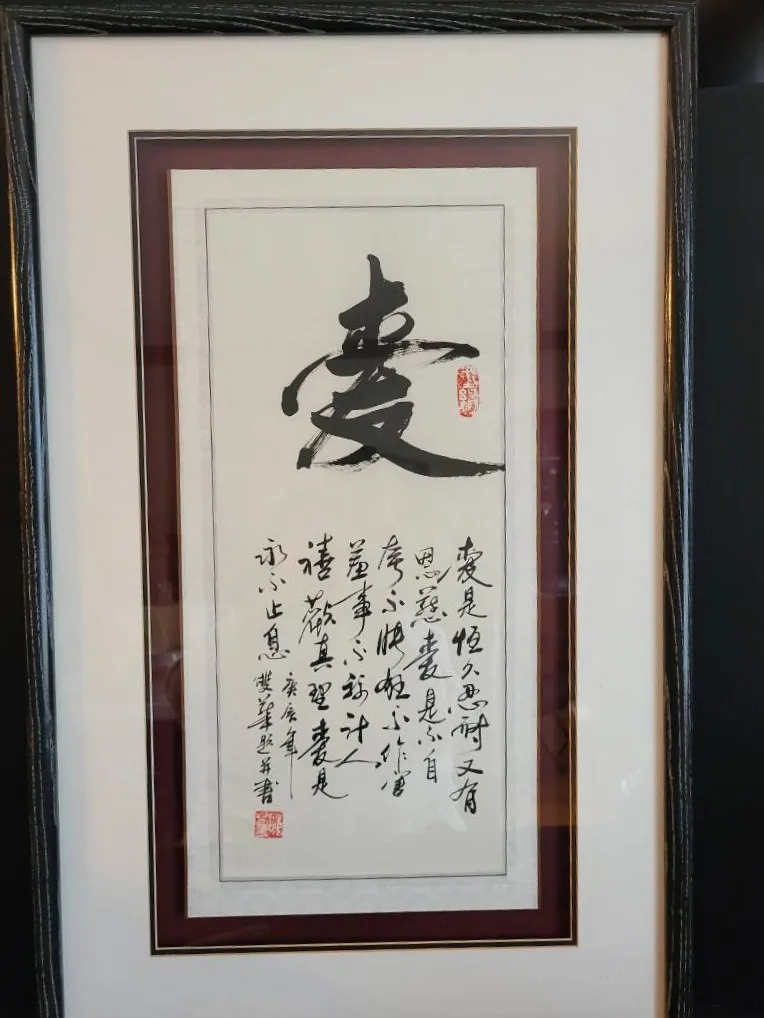 愛
愛是恆久忍耐又有
恩慈愛是不自
夸不張狂不作害
羞事不計人
禧歡真理愛是
永不止息
庚辰年
雙華題并書